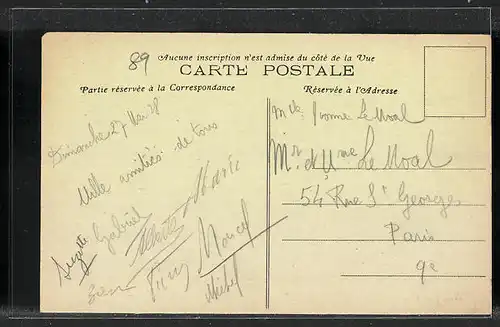 89
Aucune inscription n'est admise du côté de la Vue
CARTE POSTALE
Partie réservée à la Correspondance
Réservée à l'Adresse
Dimanche 27 Mai 28
Mille amitiés de tous
Marie
Gabriel
Marcel
Michel
Mlle Yvonne Le Moal
Mr & Mme Le Moal
54 Rue St Georges
Paris
9e